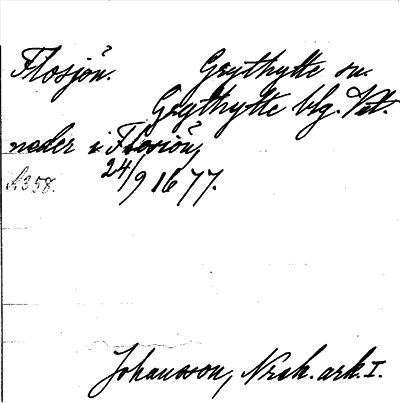 Flosjön. Grythytte sn.
Grythytte blg. Väst.
neder i Flosiön,
24/9 1677.
A358.
Johansson, Nrsk. ark. I.